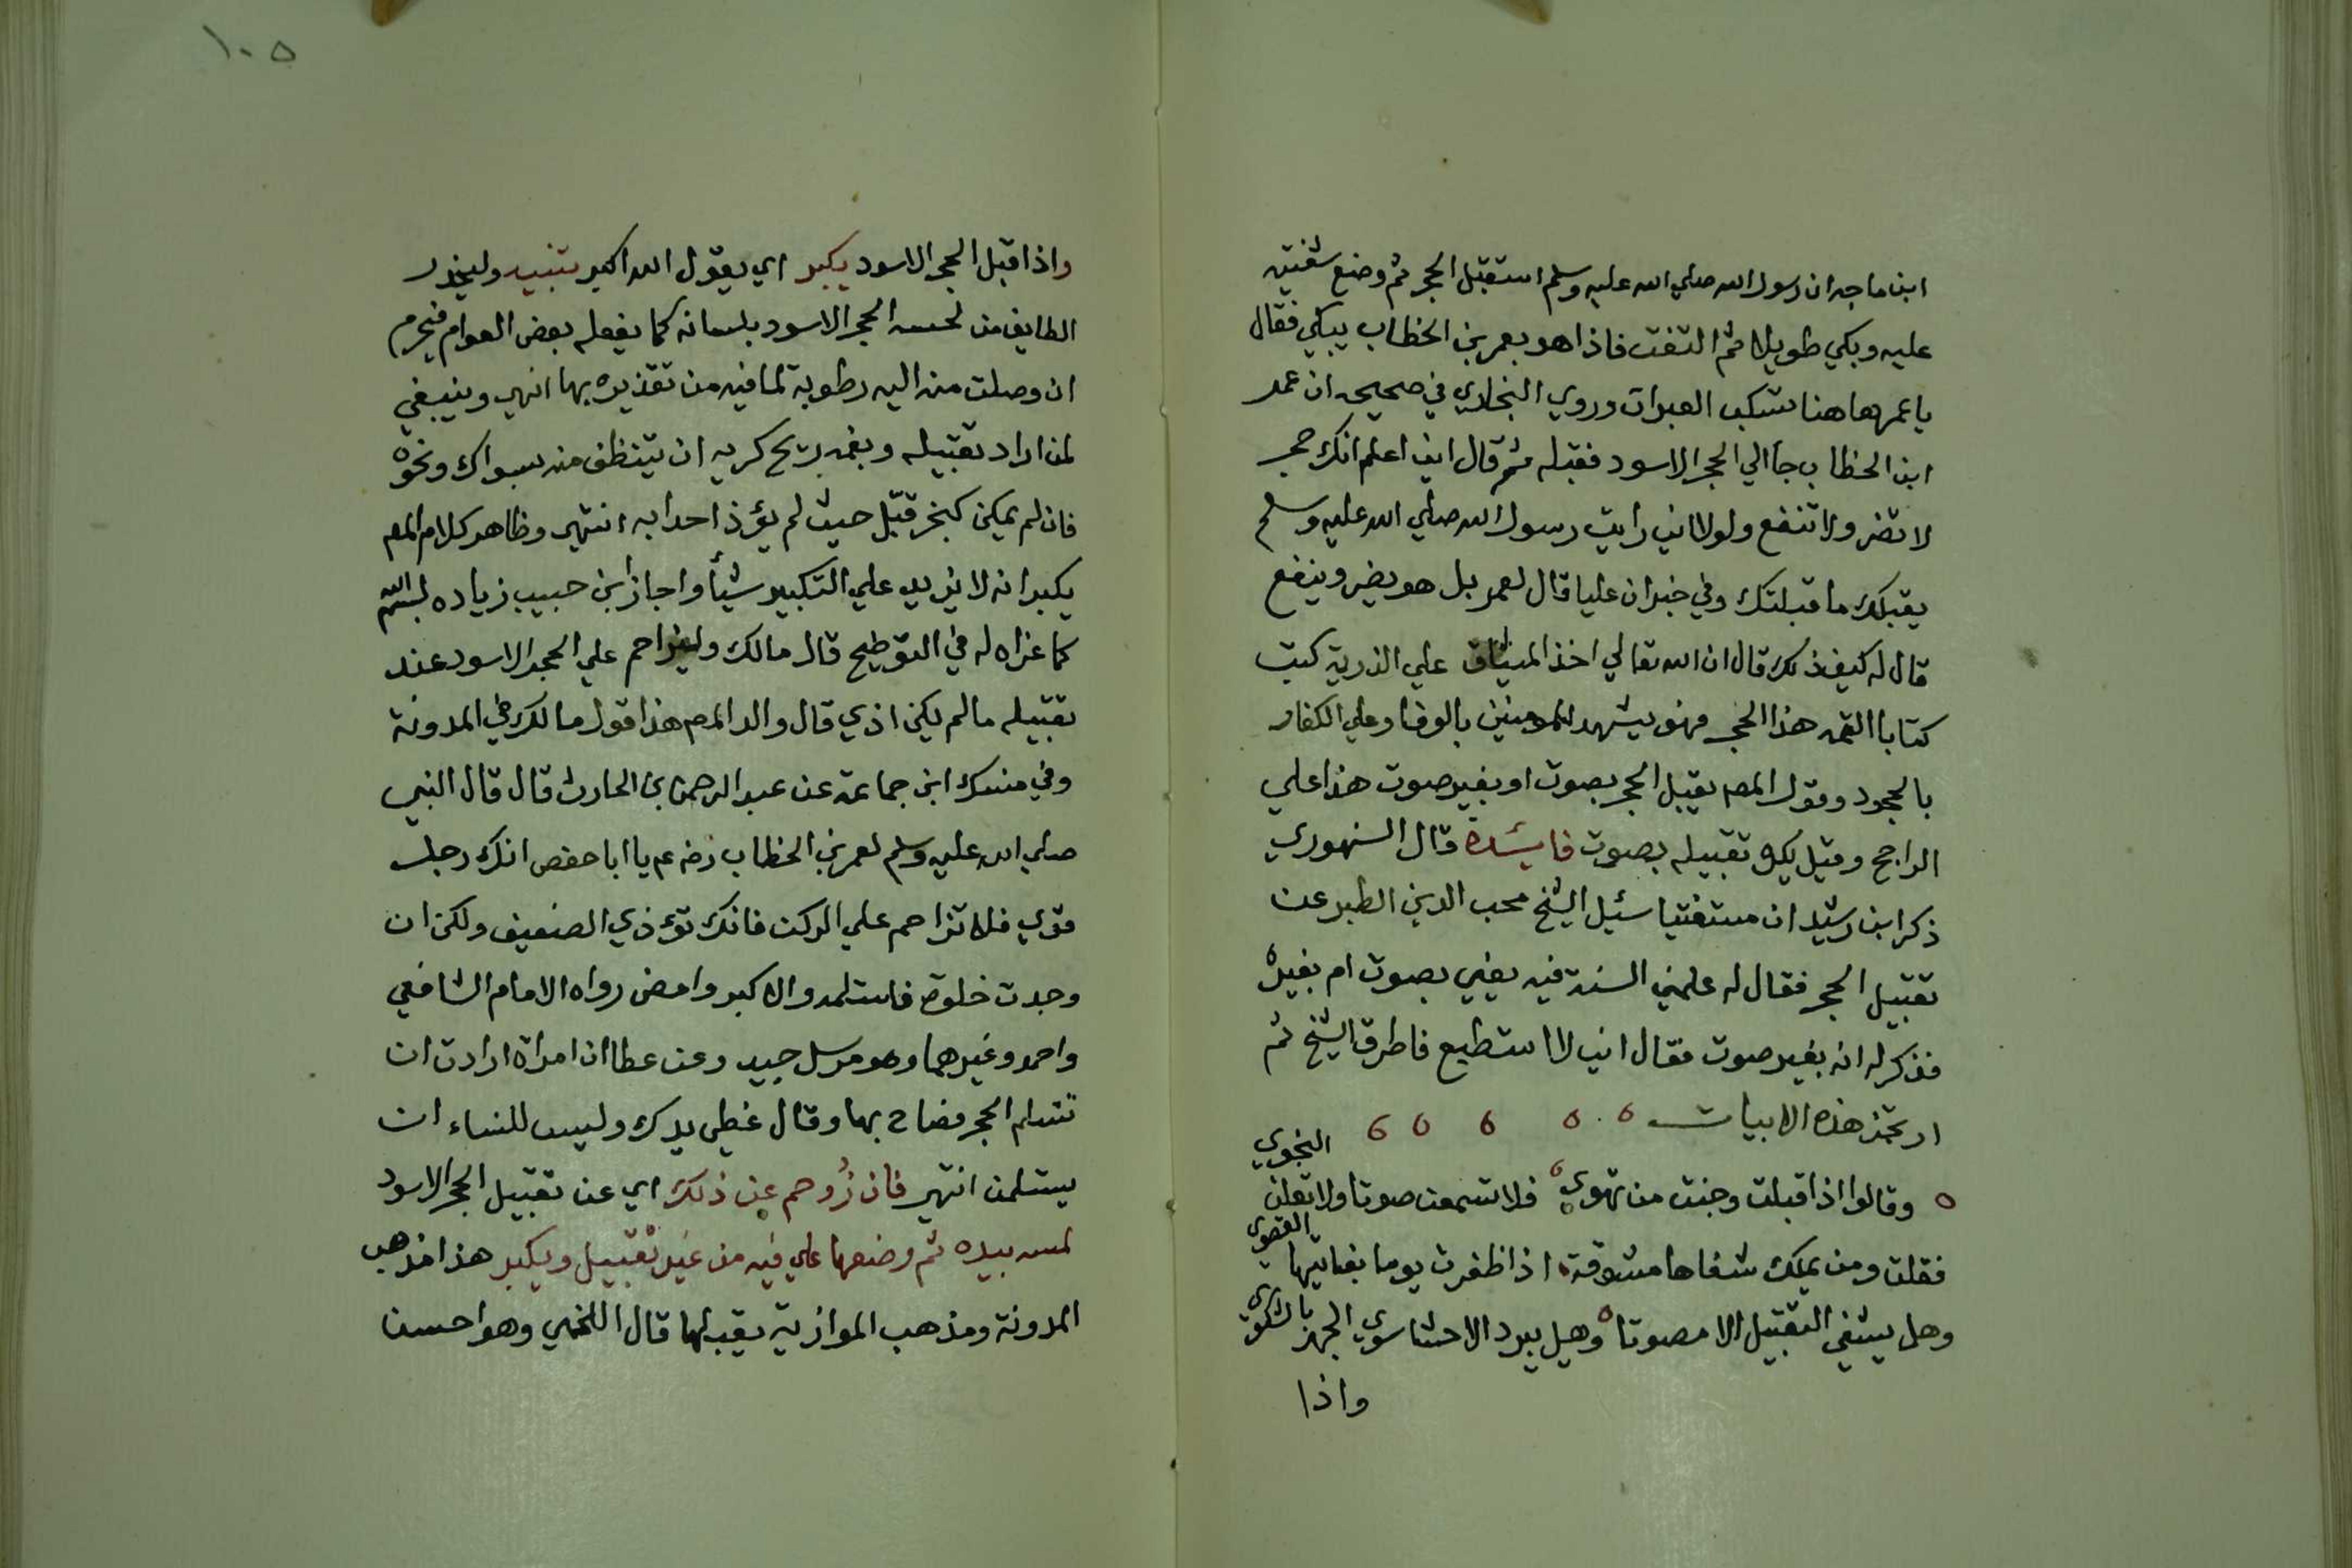 ابن ماجه ان رسول الله صلي الله عليه وسلم استقبل الحجر ثم وضع شفتيه
عليه وبكي طويلا ثم التفت فاذا هو بعمر بن الخطاب يبكي فقال
يا عمر هاهنا تسكب العبرات وروي البخاري في صحيحه ان عمر
ابن الخطاب جا الي الحجر الاسود فقبله ثم قال اني اعلم انك حجر
لا تضر ولا تنفع ولولا اني رايت رسول الله صلي الله عليه وسلم
يقبلك ما قبلتك وفي خبر ان عليا قال لعمر بل هو يضر وينفع
قال له كيف ذلك قال ان الله تعالي اخذ الميثاق علي الذرية كتب
كتابا القمه هذا الحجر فهو يشهد للمومنين بالوفا وعلي الكفار
بالجحود وقول المص يقبل الحجر بصوت او بغير صوت هذا علي
الراجح وقيل يكره تقبيله بصوت فايئدة قال السنهوري
ذكر ابن رشيد ان مستفتيا سئيل الشيخ محب الدين الطبر عن
تقبيل الحجر فقال له علمني السنة فيه يعني بصوت ام بغيره
فذكر له انه بغير صوت فقال اني لا استطيع فاطرق الشيخ ثم
ارتجز هذه الابيات
وقالوا اذا قبلت وجنت من تهوي فلا تسمعن صوتا ولا تعلن النجوي
فقلت ومن يملك شفاها مشوقة اذا ظفرت يوما بغايتها القصوي
وهل يشفي التقبيل الا مصوتا وهل يبرد الاحشا سوي الجهر بالشكوي
واذا
١٠٥
واذا قبل الحجر الاسود يكبر اي يقول الله اكبر تنبيه وليحذر
الطايف من لحسه الحجر الاسود بلسانه كما يفعله بعض العوام فيحرم
ان وصلت منه اليه رطوبة لما فيه من تقذيره بها انهي وينبغي
لمن اراد تقبيله وبفمه ريح كريه ان يتنظف منه بسواك ونحوه
فان لم يمكن كبخر قبّل حيث لم يؤذ احدا به انتهي وظاهر كلام المص
يكبر انه لا يزيد علي التكبير شيأ واجاز ابن حبيب زياده بسم الله
كما عزاه له في التوطيح قال مالك وليزاحم علي الحجر الاسود عند
تقبيله مالم يكن اذي قال والد المص هذا قول مالك في المدونة
وفي منسك ابن جماعة عن عبد الرحمن بن الحارث قال قال النبي
صلي الله عليه وسلم لعمر بن الخطاب رضه عه يا ابا حفص انك رجل
قوي فلا تزاحم علي الركن فانك تؤذي الضعيف ولكن ان
وجدت خلوة فاستلمه والا كبر وامض رواه الامام الشافعي
واحمد وغيرهما وهو مرسل جيد وعن عطا ان امراة ارادت ان
تستلم الحجر فصاح بها وقال غطي يدك وليس للنساء ان
يستلمن انتهي فان زُوحم عن ذلك اي عن تقبيل الحجر الاسود
لمسه بيده ثم وضعها علي فيه من غير تقبيل ويكبر هذا مذهب
المدونة ومذهب الموازية يقبلها قال اللخمي وهو احسن